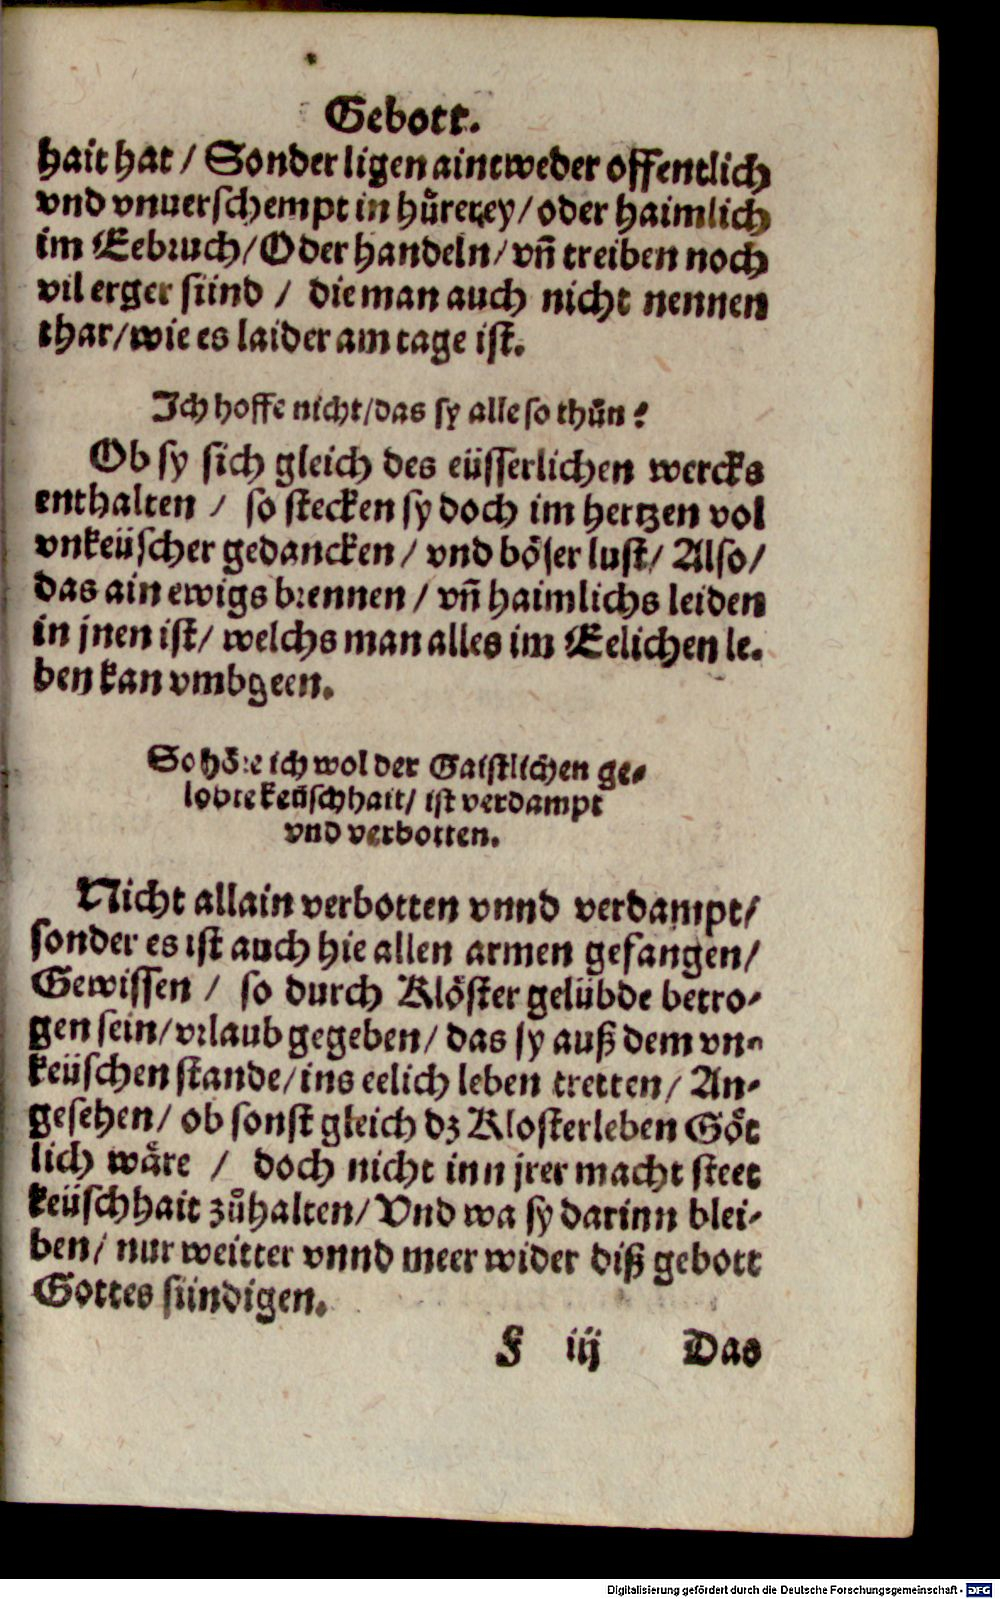 Gebott.
hait hat / Sonder ligen aintweder offentlich
vnd vnuerschempt in hůrerey / oder haimlich
im Eebruch / Oder handeln / vñ treiben noch
vil erger sünd / die man auch nicht nennen
thar / wie es laider am tage ist.
Ich hoffe nicht / das sy alle so thůn?
Ob sy sich gleich des eüsserlichen wercks
enthalten / so stecken sy doch im hertzen vol
vnkeüscher gedancken / vnd böser lust / Also /
das ain ewigs brennen / vñ haimlichs leiden
in jnen ist / welchs man alles im Eelichen le-
ben kan vmbgeen.
So höre ich wol der Gaistlichen ge-
lobte keüschhait / ist verdampt
vnd verbotten.
Nicht allain verbotten vnnd verdampt /
sonder es ist auch hie allen armen gefangen /
Gewissen / so durch Klöster gelübde betro-
gen sein / vrlaub gegeben / das sy auß dem vn-
keüschen stande / ins eelich leben tretten / An-
gesehen / ob sonst gleich dz Klosterleben Göt
lich wäre / doch nicht inn jrer macht steet
keüschhait zůhalten / Vnd wa sy darinn blei-
ben / nur weitter vnnd meer wider diß gebott
Gottes sündigen.
F iij Das
Digitalisierung gefördert durch die Deutsche Forschungsgemeinschaft - DFG